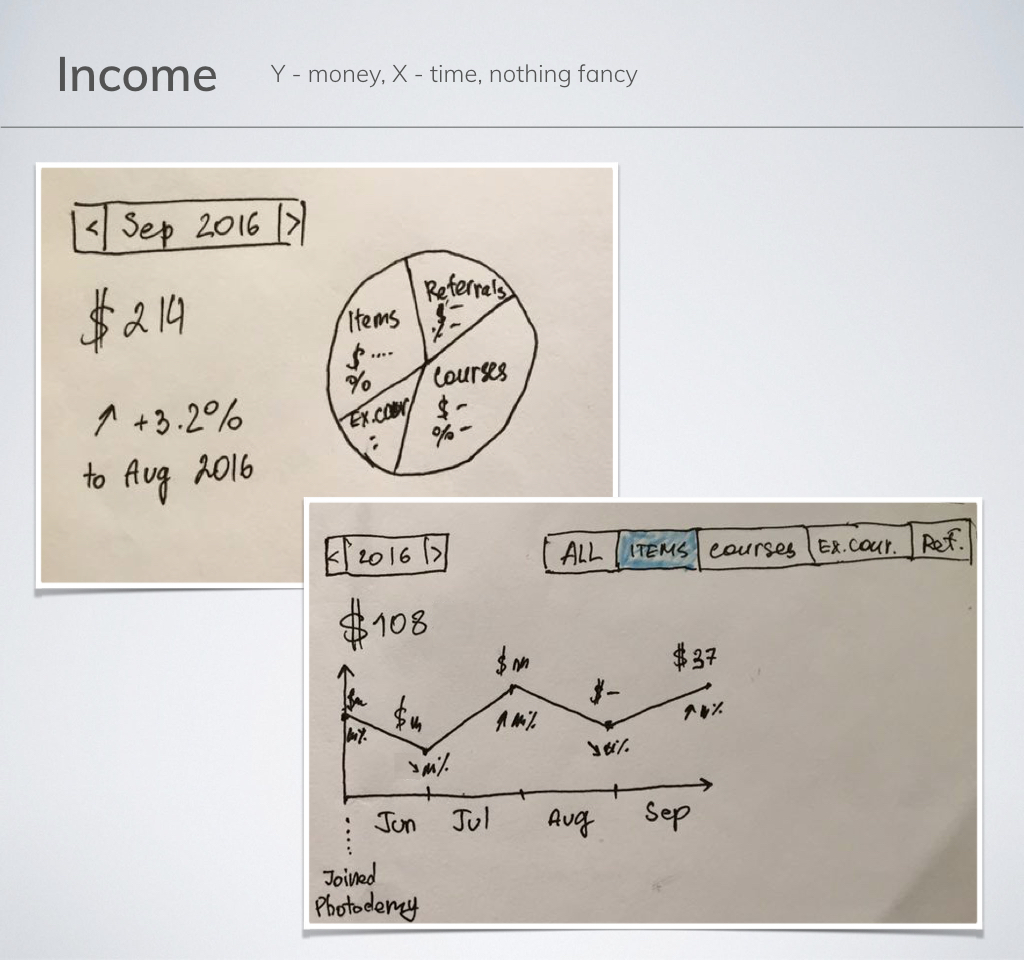 Income
Y - money, X - time, nothing fancy
< Sep 2016 >
$ 214
↑ +3.2%
to Aug 2016
Items
$ ....
%
Referrals
$ -
% -
Courses
$ -
% -
Ex.cour
:
< 2016 >
ALL ITEMS courses Ex.cour. Ref.
$108
$
%
$
↘ %
$
↑ %
$ -
↘ %
$37
↑ %
Jun Jul Aug Sep
Joined
Photodemy